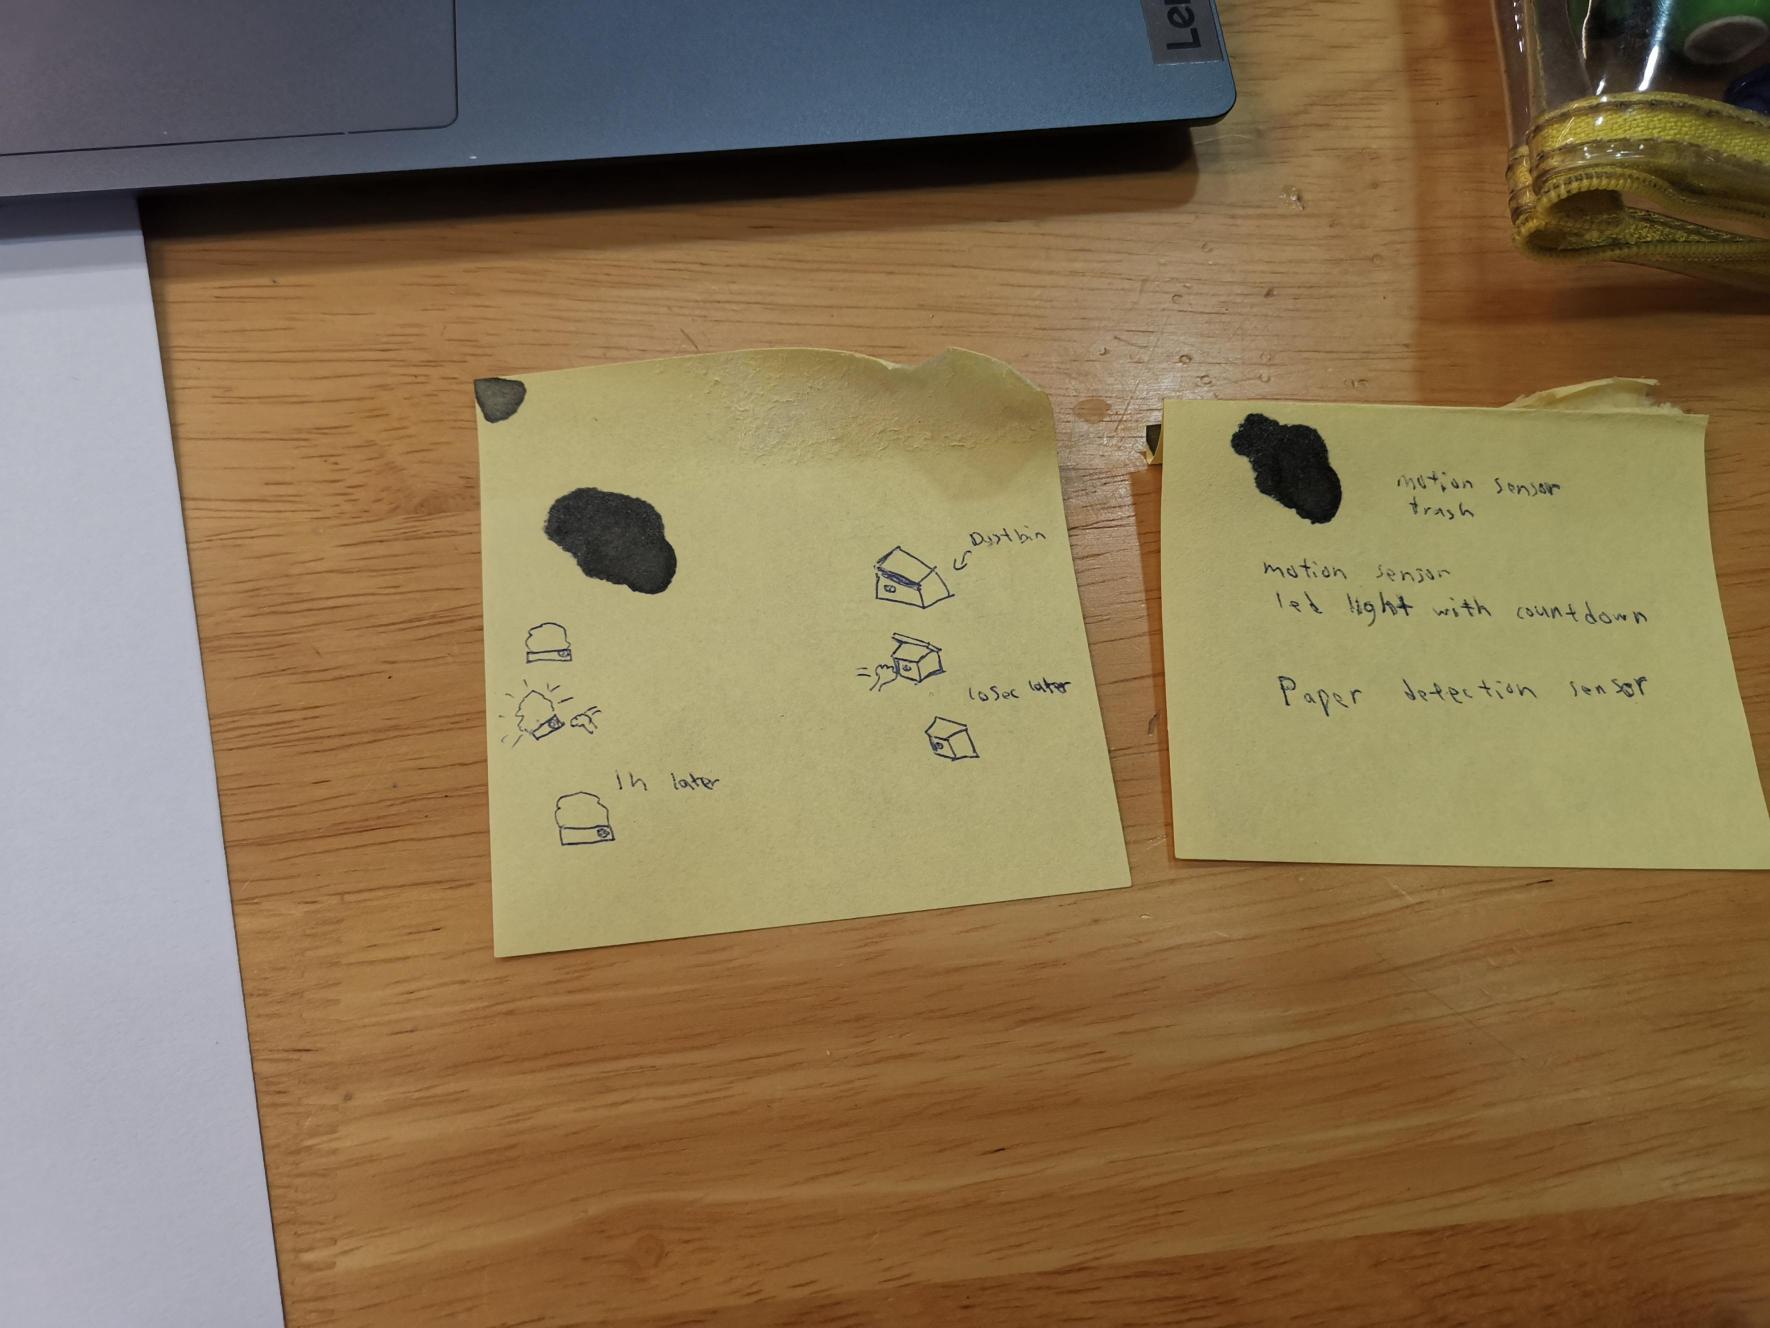 Le
Dustbin
10sec later
1h later
motion sensor
trash
motion sensor
led light with countdown
Paper detection sensor